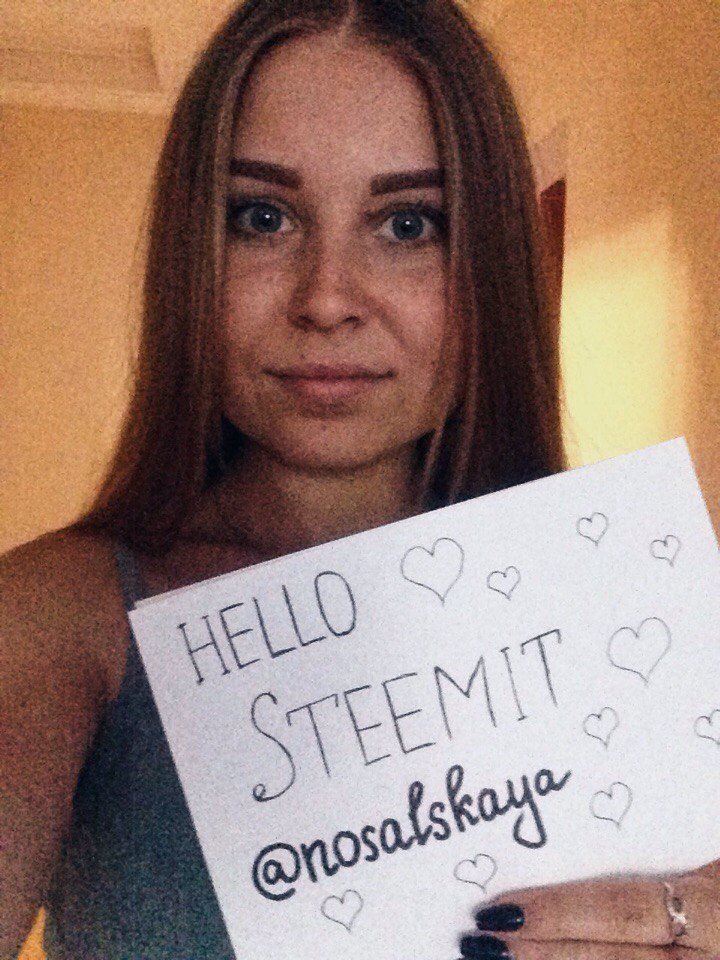 HELLO
STEEMIT
@nosalskaya